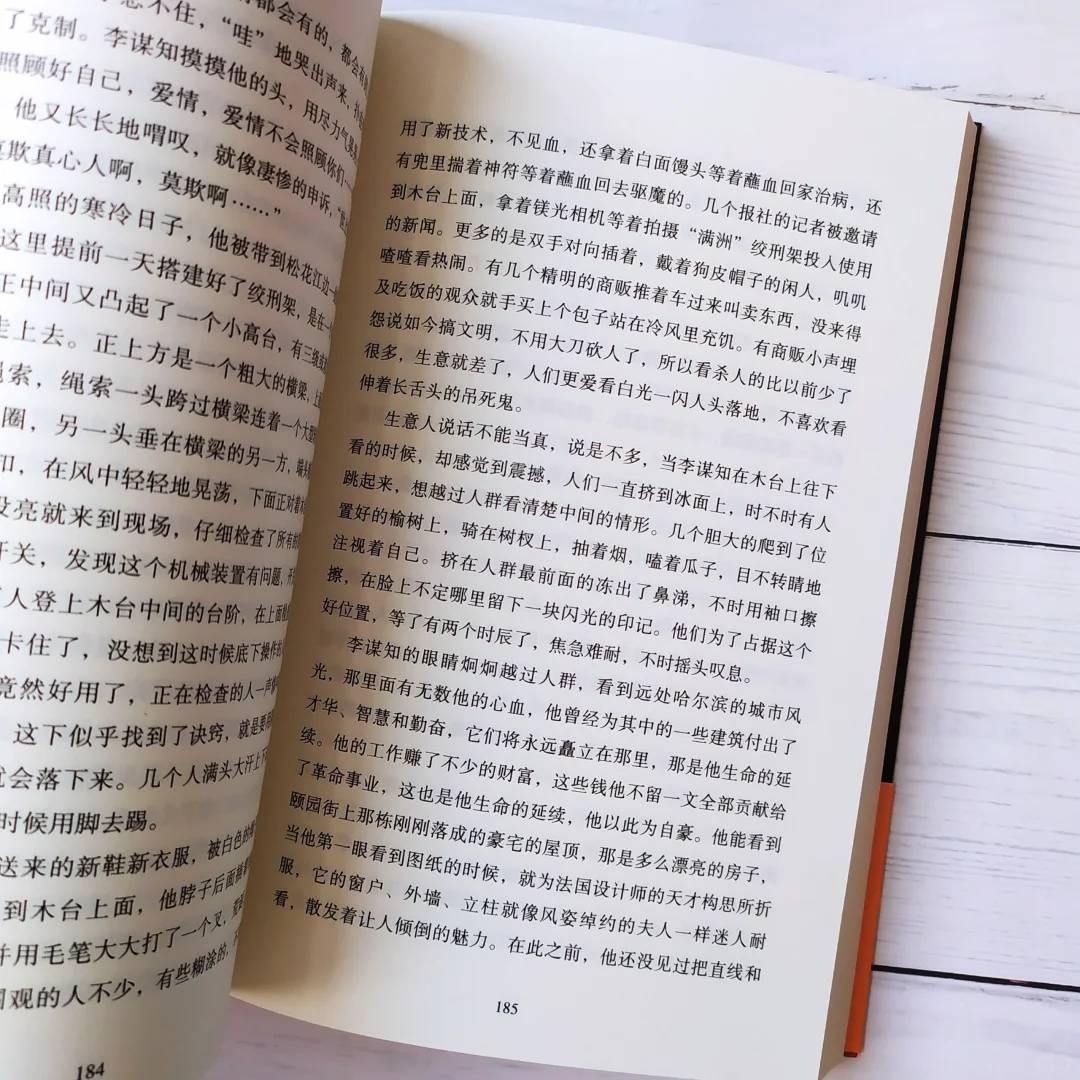 都会有的，都会有
忍不住，“哇”地哭出声来，
了克制。李谋知摸摸他的头，用尽力气
照顾好自己，爱情，爱情不会照顾你们
他又长长地喟叹，就像凄惨的申诉，
莫欺真心人啊，莫欺啊……”
高照的寒冷日子，他被带到松花江边
这里提前一天搭建好了绞刑架，是在
正中间又凸起了一个小高台，有三级
走上去。正上方是一个粗大的横梁，上
绳索，绳索一头跨过横梁连着一个大
圈，另一头垂在横梁的另一方，端头
印，在风中轻轻地晃荡，下面正对着
没亮就来到现场，仔细检查了所有的
开关，发现这个机械装置有问题，
人登上木台中间的台阶，在上面
卡住了，没想到这时候底下操作
竟然好用了，正在检查的人一声
这下似乎找到了诀窍，就是要
就会落下来。几个人满头大汗上
时候用脚去踢。
送来的新鞋新衣服，被白色的
到木台上面，他脖子后面插着
并用毛笔大大打了一个叉，
围观的人不少，有些糊涂的，
184
用了新技术，不见血，还拿着白面馒头等着蘸血回家治病，还
有兜里揣着神符等着蘸血回去驱魔的。几个报社的记者被邀请
到木台上面，拿着镁光相机等着拍摄“满洲”绞刑架投入使用
的新闻。更多的是双手对向插着，戴着狗皮帽子的闲人，叽叽
喳喳看热闹。有几个精明的商贩推着车过来叫卖东西，没来得
及吃饭的观众就手买上个包子站在冷风里充饥。有商贩小声埋
怨说如今搞文明，不用大刀砍人了，所以看杀人的比以前少了
很多，生意就差了，人们更爱看白光一闪人头落地，不喜欢看
伸着长舌头的吊死鬼。
生意人说话不能当真，说是不多，当李谋知在木台上往下
看的时候，却感觉到震撼，人们一直挤到冰面上，时不时有人
跳起来，想越过人群看清楚中间的情形。几个胆大的爬到了位
置好的榆树上，骑在树杈上，抽着烟，嗑着瓜子，目不转睛地
注视着自己。挤在人群最前面的冻出了鼻涕，不时用袖口擦
擦，在脸上不定哪里留下一块闪光的印记。他们为了占据这个
好位置，等了有两个时辰了，焦急难耐，不时摇头叹息。
李谋知的眼睛炯炯越过人群，看到远处哈尔滨的城市风
光，那里面有无数他的心血，他曾经为其中的一些建筑付出了
才华、智慧和勤奋，它们将永远矗立在那里，那是他生命的延
续。他的工作赚了不少的财富，这些钱他不留一文全部贡献给
了革命事业，这也是他生命的延续，他以此为自豪。他能看到
颐园街上那栋刚刚落成的豪宅的屋顶，那是多么漂亮的房子，
当他第一眼看到图纸的时候，就为法国设计师的天才构思所折
服，它的窗户、外墙、立柱就像风姿绰约的夫人一样迷人耐
看，散发着让人倾倒的魅力。在此之前，他还没见过把直线和
185